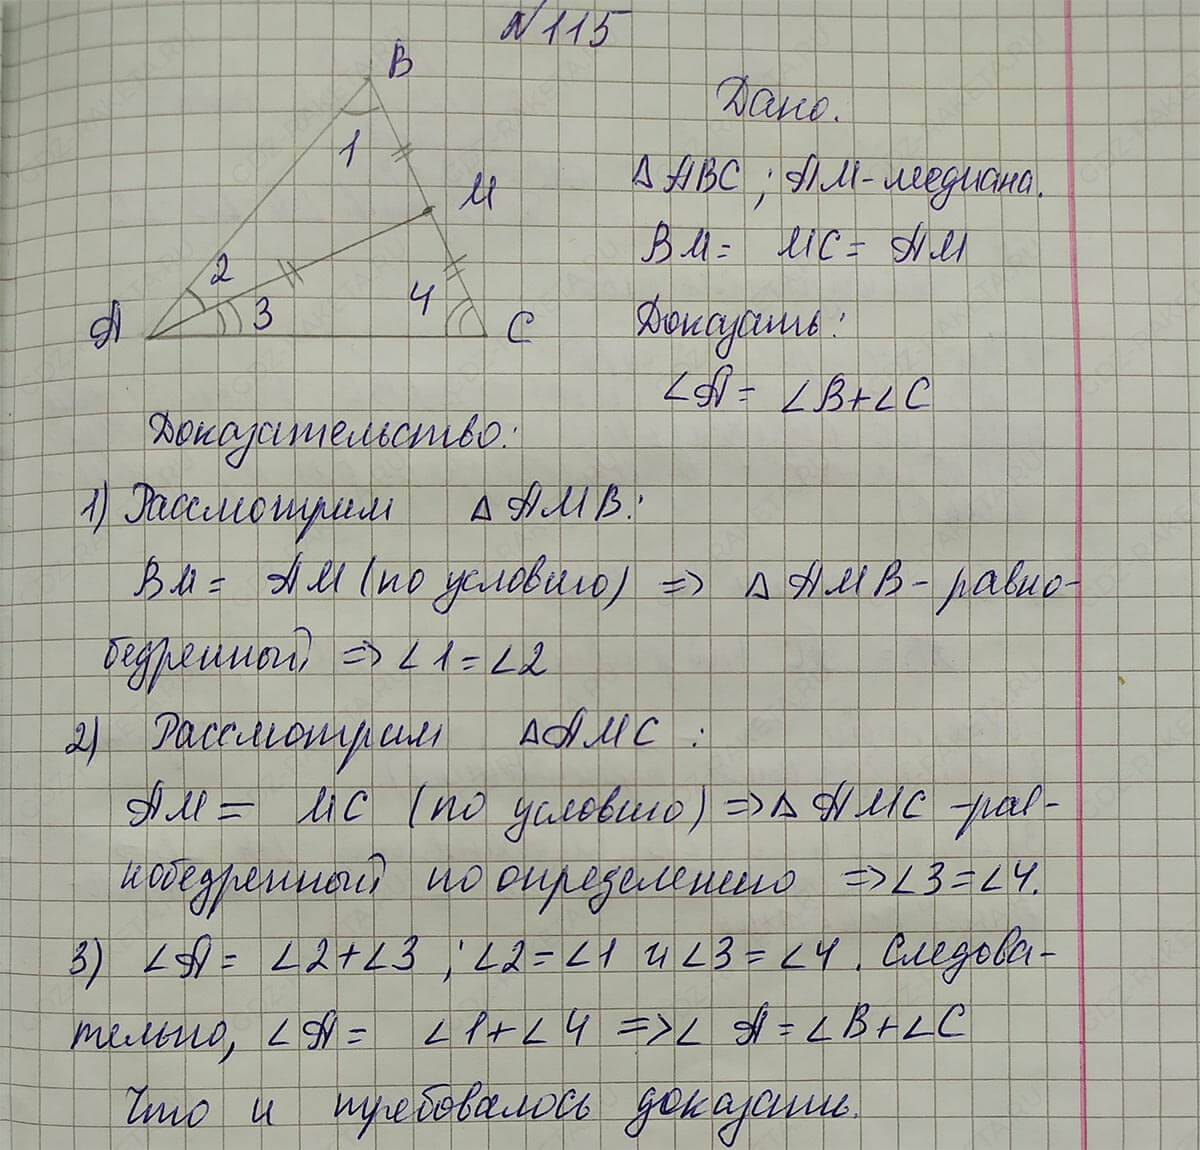 №115
B
Дано.
1
M
△ABC ; AM-медиана.
BM= MC= AM
2
3
4
A
C
Доказать:
∠A= ∠B+∠C
Доказательство:
1) Рассмотрим △AMB:
BM= AM (по условию) => △AMB-равно-
бедренный => ∠1=∠2
2) Рассмотрим △AMC :
AM= MC (по условию) => △AMC -рав-
нобедренный по определению => ∠3=∠4.
3) ∠A= ∠2+∠3 ; ∠2=∠1 и ∠3=∠4. Следова-
тельно, ∠A= ∠1+∠4 => ∠A=∠B+∠C
Что и требовалось доказать.